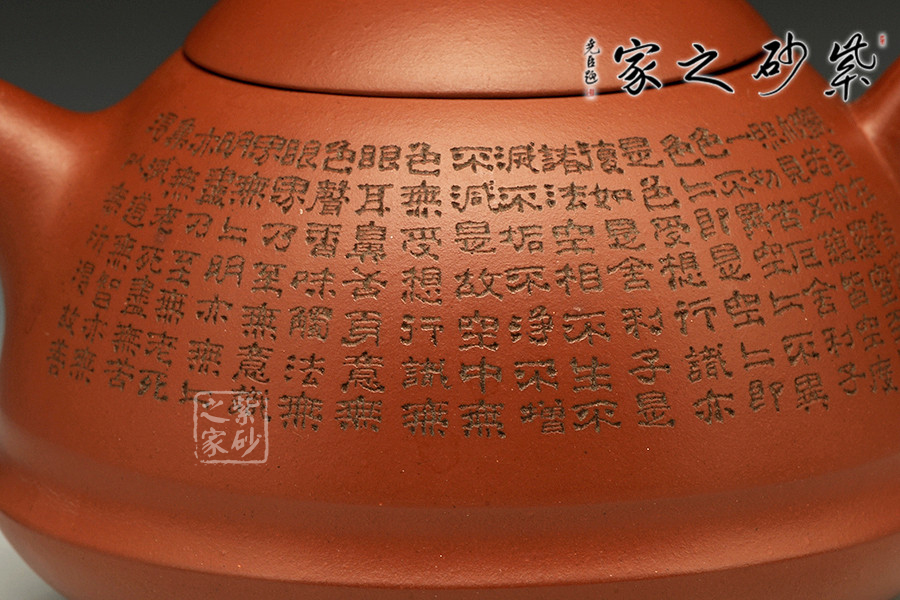 紫砂之家
照見五蘊皆空度
一切苦厄舍利子
色不異空二不異
色二即是空二即
是色受想行識亦
復如是舍利子是
諸法空相不生不
滅不垢不淨不增
不減是故空中無
色無受想行識無
眼耳鼻舌身意無
色聲香味觸法無
眼界乃至無意識
界無二明亦無二
明盡乃至無老死
亦無老死盡無苦
集滅道無智亦無
得以無所得故菩
紫砂之家